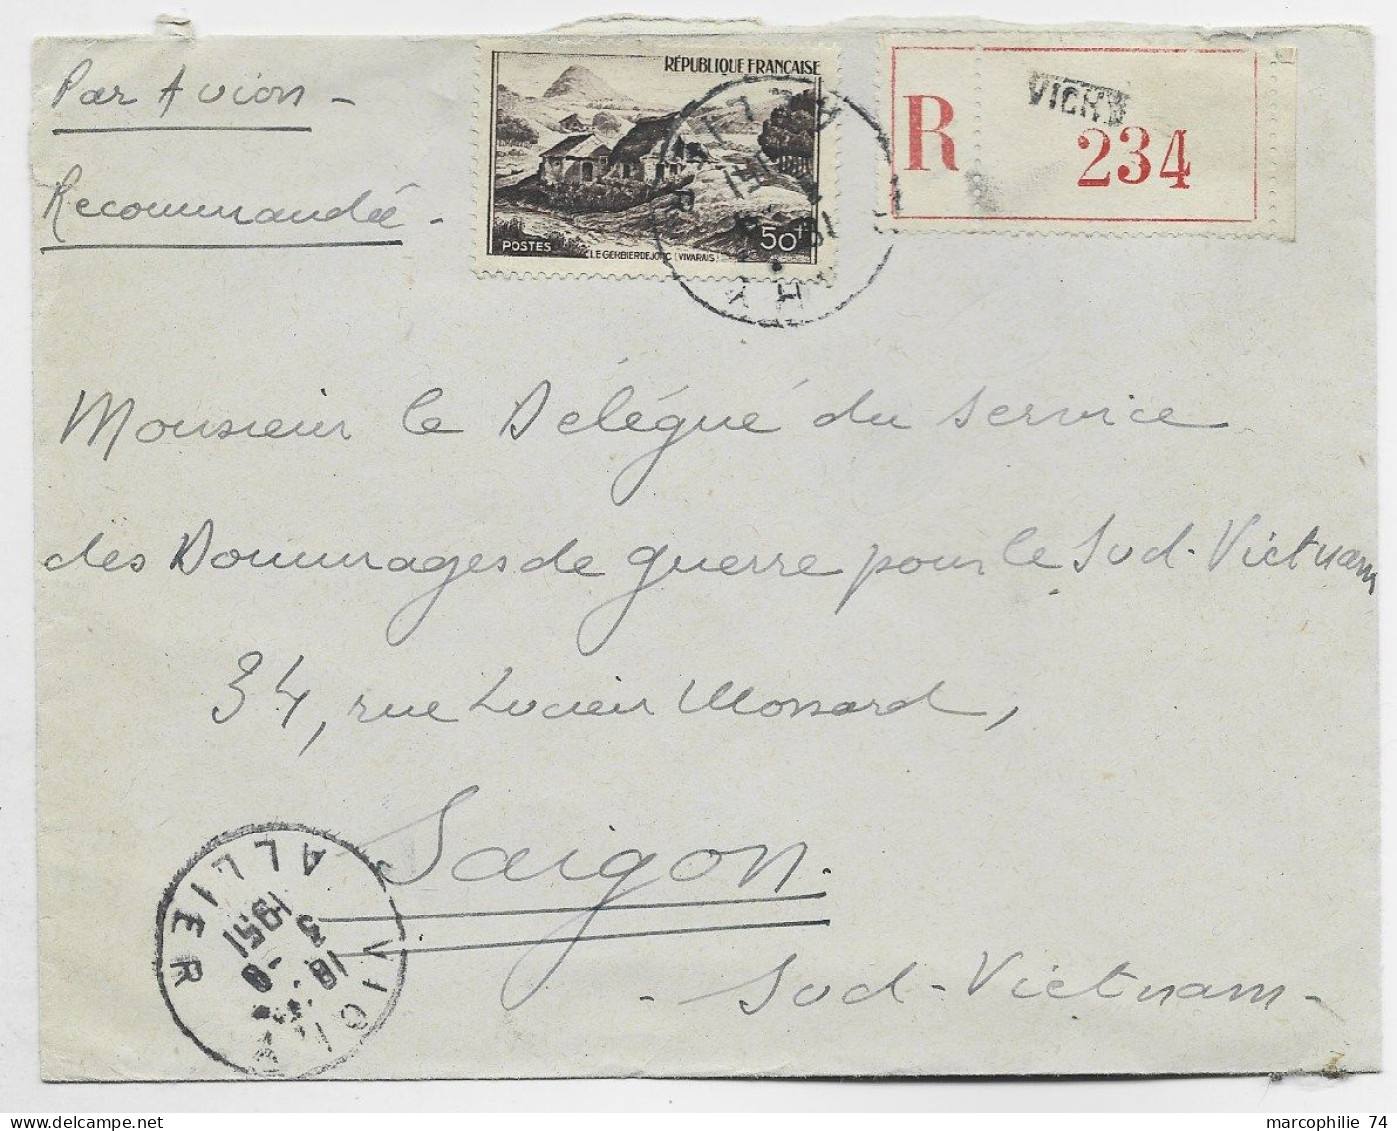 Par Avion -
Recommandée -
RÉPUBLIQUE FRANÇAISE
POSTES
LE GERBIER DE JONC (VIVARAIS)
50F
R
VICHY
234
Monsieur le Délégué du service
des Dommages de guerre pour le Sud-Vietnam
34, rue Lucien Mossard,
Saigon.
- Sud-Vietnam -
VICHY
ALLIER
18
8 - 3
1951
marcophilie 74